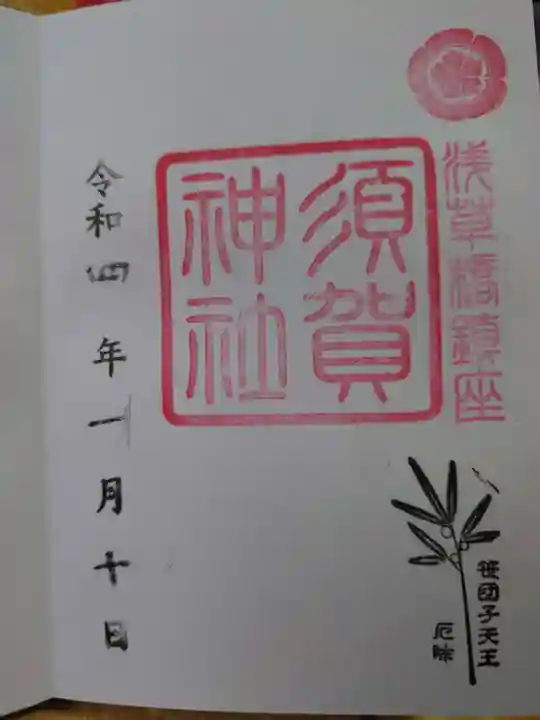 浅草橋鎮座
須賀
神社
笹団子天王
厄除
令和四年一月十日